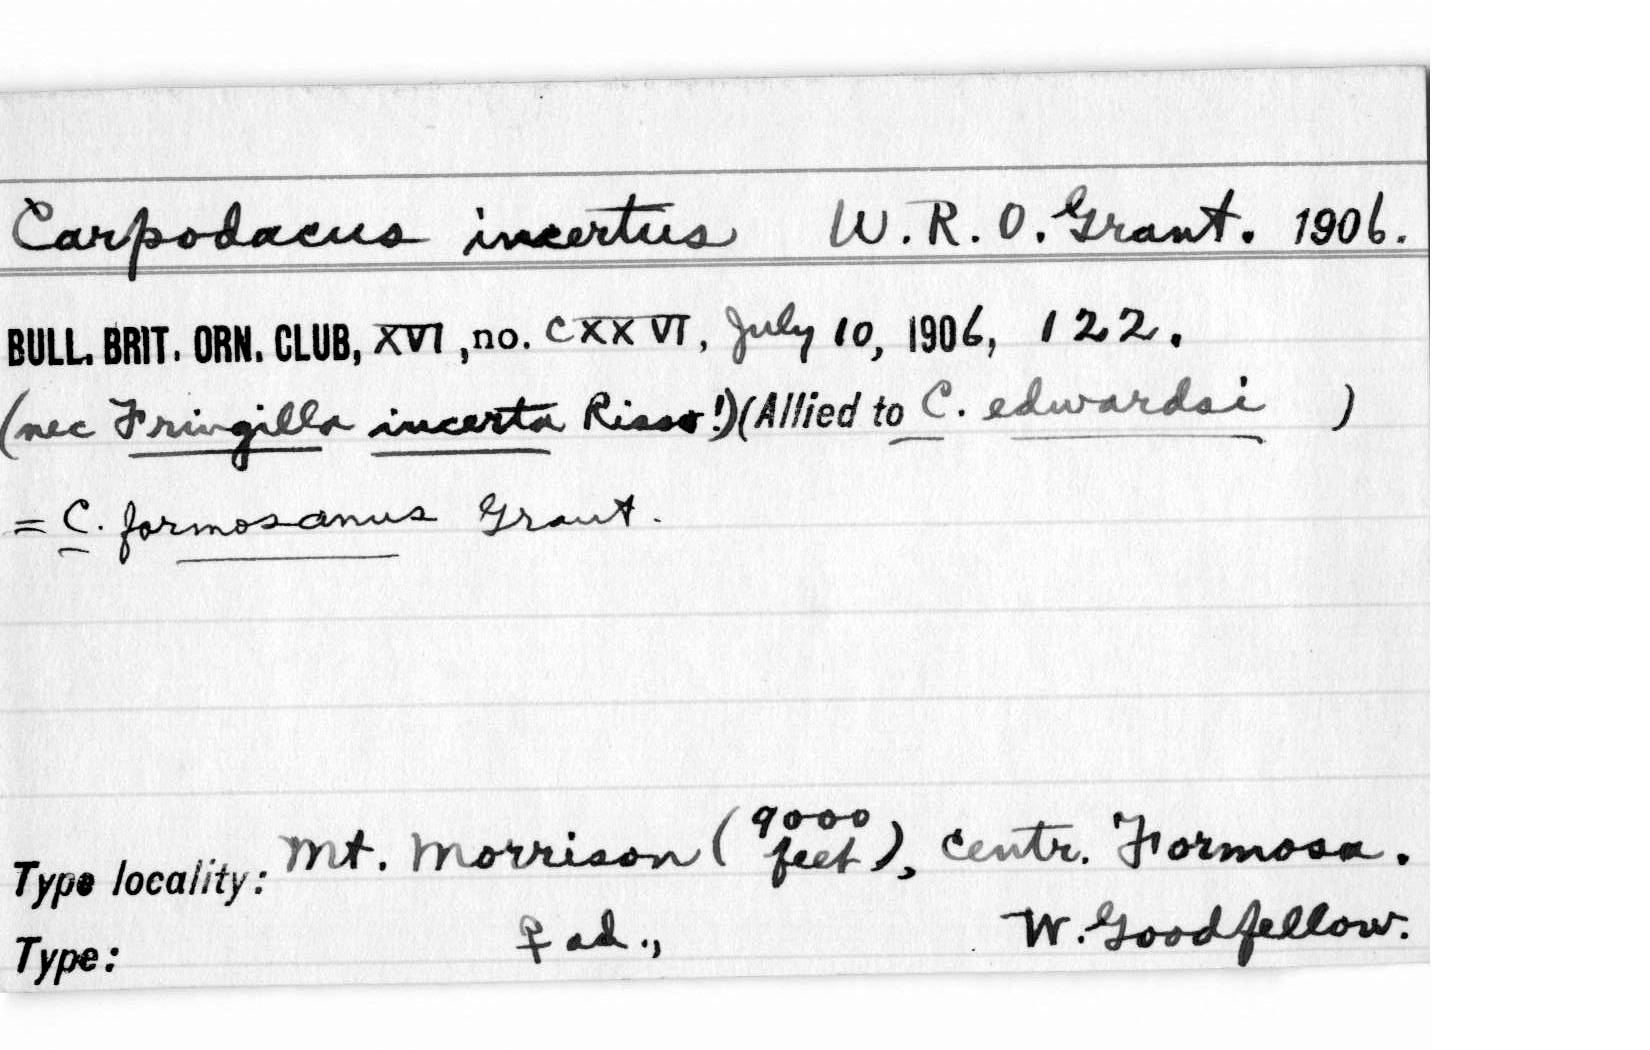 Carpodacus incertus W. R. O. Grant. 1906.
BULL. BRIT. ORN. CLUB, XVI, no. CXXVI, July 10, 1906, 122.
(nec Fringilla incerta Risso!) (Allied to C. edwardsi )
= C. formosanus Grant.
Type locality: Mt. Morrison (9000 feet), Centr. Formosa.
Type: ♀ ad., W. Goodfellow.